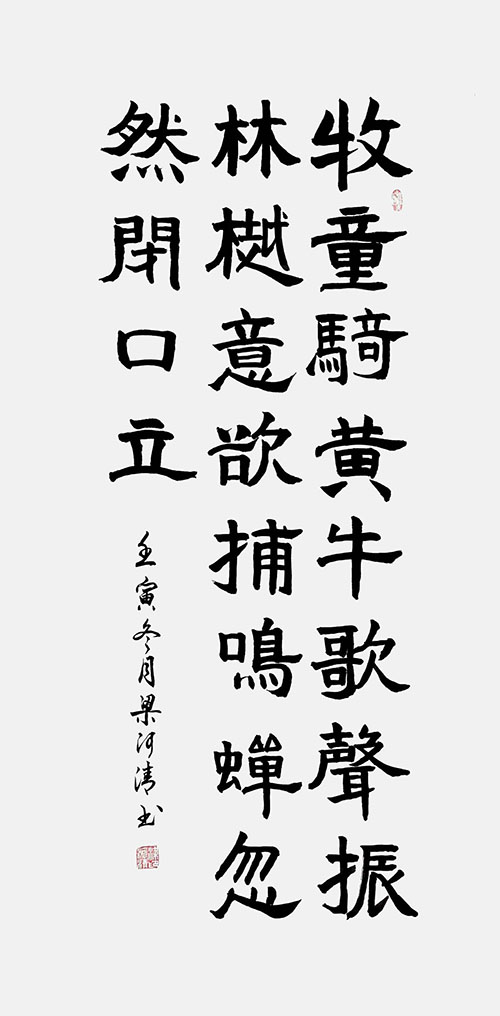 牧童騎黃牛歌聲振
林樾意欲捕鳴蟬忽
然閉口立
壬寅冬月梁河清书